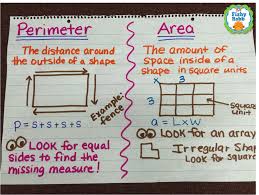 Perimeter
The distance around
the outside of a shape
Example:
fence
P = S+S+S+S
Look for equal
sides to find the
missing measure!
Area
The amount of
space inside of a
shape in square units
x 3
3
square
unit
a = L x W
Look for an array
Irregular Shap
Look for square